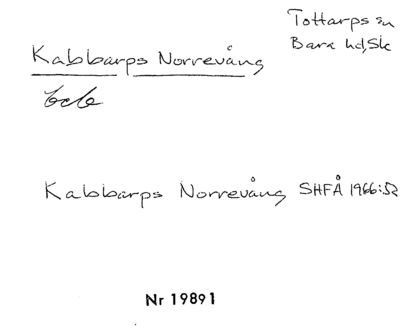 Tottarps sn
Bara hd, Sk
Kabbarps Norrevång
Kabbarps Norrevång SHFÅ 1966:52
Nr 19891